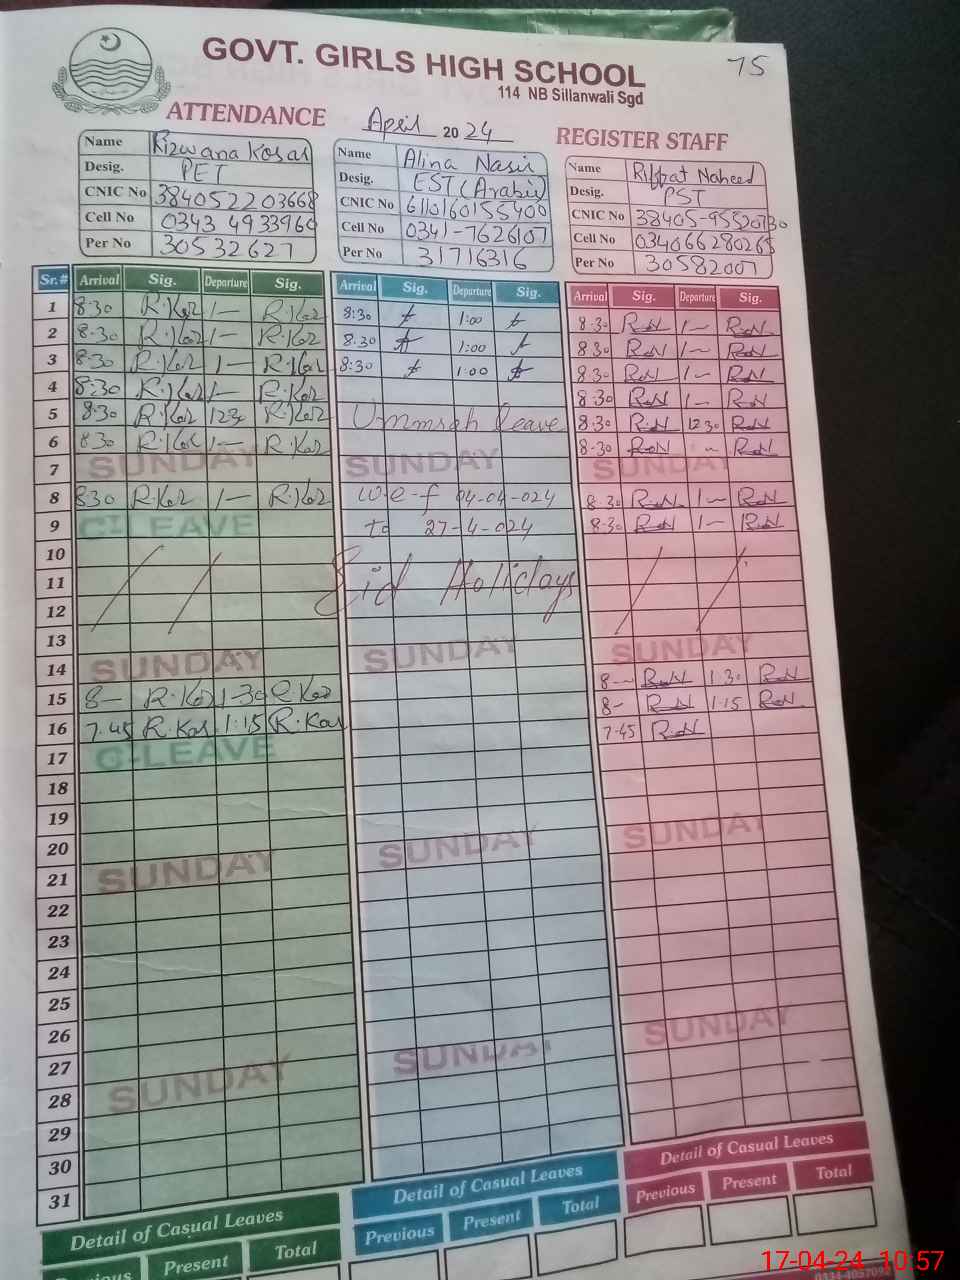 GOVT. GIRLS HIGH SCHOOL
75
114 NB Sillanwali Sgd
ATTENDANCE April 2024 REGISTER STAFF
Name Rizwana Kosar
Desig. PET
CNIC No 384052203668
Cell No 0343 4933960
Per No 30532627
Name Alina Nasir
Desig. EST (Arabic)
CNIC No 6110160155400
Cell No 0341-7626107
Per No 31716316
Name Riffat Naheed
Desig. PST
CNIC No 38405-95520730
Cell No 03406628026
Per No 30582007
Sr.# Arrival Sig. Departure Sig. Arrival Sig. Departure Sig. Arrival Sig. Departure Sig.
1 8:30 R.Kor 1— R.Kor 8:30 1:00 8-30 R.N 1— R.N
2 8:30 R.Kor 1— R.Kor 8:30 1:00 8-30 R.N 1— R.N
3 8:30 R.Kor 1— R.Kor 8:30 1:00 8-30 R.N 1— R.N
4 8:30 R.Kor 1— R.Kor 8-30 R.N 1— R.N
5 8:30 R.Kor 1230 R.Kor Ummrah leave 8-30 R.N 1230 R.N
6 8:30 R.Kor 1— R.Kor 8-30 R.N R.N
7 SUNDAY SUNDAY SUNDAY
8 830 R.Kor 1— R.Kor w.e-f 04-04-024 8-30 R.N 1— R.N
9 C-LEAVE to 27-4-024 8-30 R.N 1— R.N
10
11 Eid Holidays
12
13
14 SUNDAY SUNDAY SUNDAY
15 8— R.Kor 1-30 R.Kor 8— R.N 1.30 R.N
16 7.45 R.Kos 1:15 R.Kos 8- R.N 1.15 R.N
17 C-LEAVE 7-45 R.N
18
19
20
21 SUNDAY SUNDAY SUNDAY
22
23
24
25
26
27
28 SUNDAY SUNDAY SUNDAY
29
30
31
Detail of Casual Leaves Detail of Casual Leaves Detail of Casual Leaves
Previous Present Total Previous Present Total Previous Present Total
17-04-24 10:57